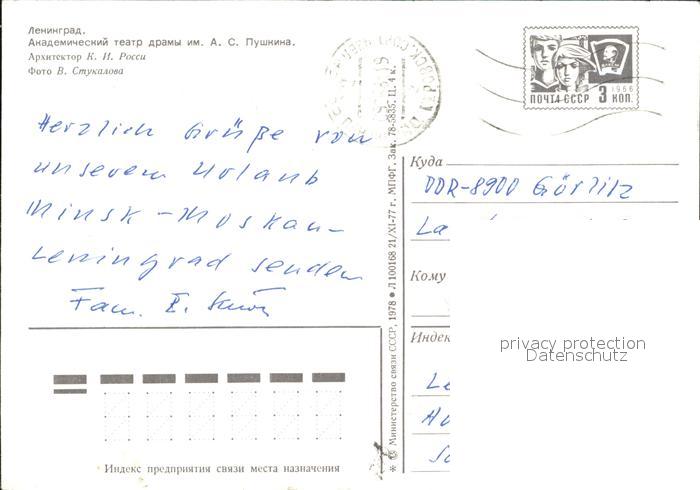 Ленинград.
Академический театр драмы им. А. С. Пушкина.
Архитектор К. И. Росси
Фото В. Стукалова
1966
ПОЧТА СССР 3 КОП.
Herzlich Grüße von
unserem Urlaub
Minsk-Moskau-
Leningrad senden
Fam. E.
* Министерство связи СССР, 1978 ● Л 100168 21/XI-77 г. МПФГ. Зак. 78-5835. II. 4 к.
Куда
DDR-8900 Görlitz
La
Кому
Индек
privacy protection
Datenschutz
Le
Индекс предприятия связи места назначения